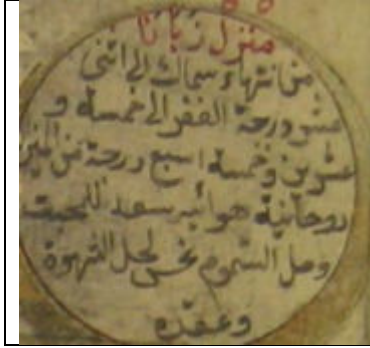 منزل زبانا
من انتهاء سماك الى اثنى
عشر درجة الغفر الى خمسة و
عشرين وخمسة اسبع درجة من الميزان
روحانية هوائية سعد للمحبت
وحل السموم نحس لحل الشهوة
وعقده